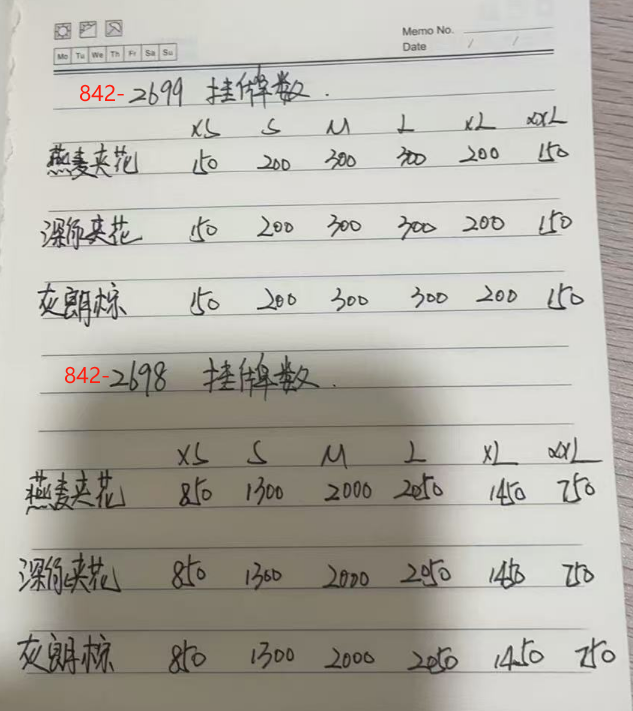 Memo No.
Mo Tu We Th Fr Sa Su
Date / /
842-2699 挂牌数.
XS S M L XL XXL
燕麦夹花 150 200 300 300 200 150
深灰夹花 150 200 300 300 200 150
灰朗棕 150 200 300 300 200 150
842-2698 挂牌数.
XS S M L XL XXL
燕麦夹花 850 1300 2000 2050 1450 750
深灰夹花 850 1300 2000 2050 1450 750
灰朗棕 850 1300 2000 2050 1450 750